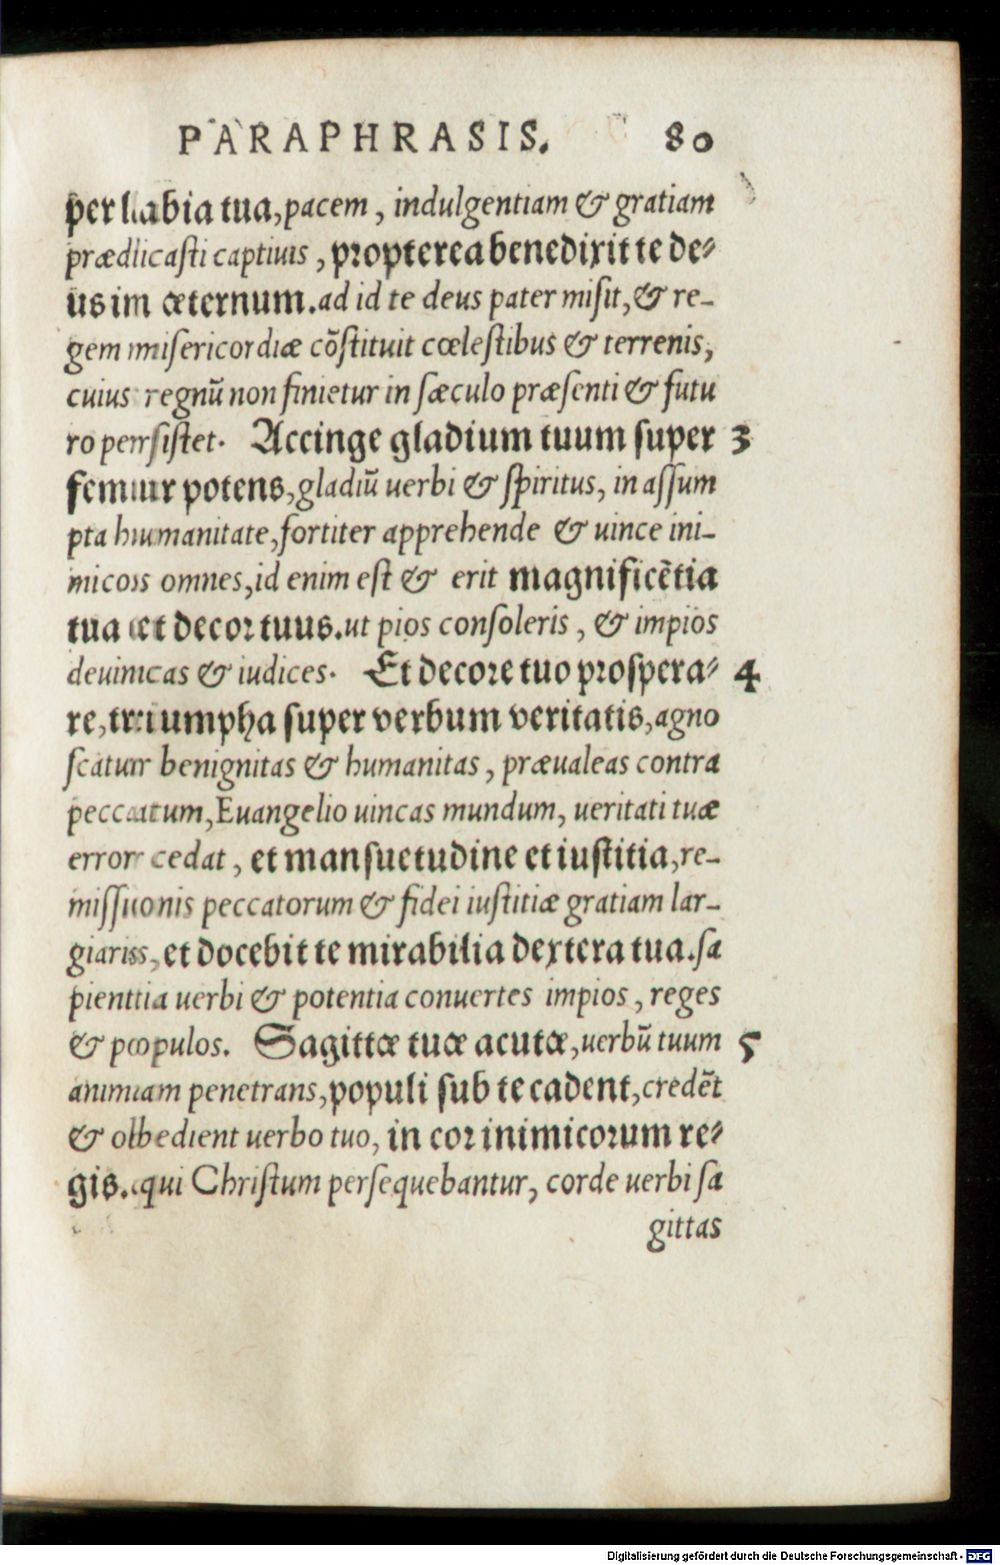 PARAPHRASIS. 80
per labia tua, pacem, indulgentiam & gratiam
prædicasti captiuis, propterea benedixit te de⸗
us im æternum. ad id te deus pater misit, & re-
gem misericordiæ cõstituit cœlestibus & terrenis,
cuius regnũ non finietur in sæculo præsenti & futu
ro persistet. Accinge gladium tuum super 3
femur potens, gladiũ uerbi & spiritus, in assum
pta humanitate, fortiter apprehende & uince ini-
micos omnes, id enim est & erit magnificẽtia
tua et decor tuus. ut pios consoleris, & impios
deuincas & iudices. Et decore tuo prospera⸗ 4
re, triumpha super verbum veritatis, agno
scatur benignitas & humanitas, præualeas contra
peccatum, Euangelio uincas mundum, ueritati tuæ
error cedat, et mansuetudine et iustitia, re-
missionis peccatorum & fidei iustitiæ gratiam lar-
giaris, et docebit te mirabilia dextera tua. sa
pientia uerbi & potentia conuertes impios, reges
& populos. Sagittæ tuæ acutæ, uerbũ tuum 5
animam penetrans, populi sub te cadent, credẽt
& obedient uerbo tuo, in cor inimicorum re⸗
gis. qui Christum persequebantur, corde uerbi sa
gittas
Digitalisierung gefördert durch die Deutsche Forschungsgemeinschaft - DFG